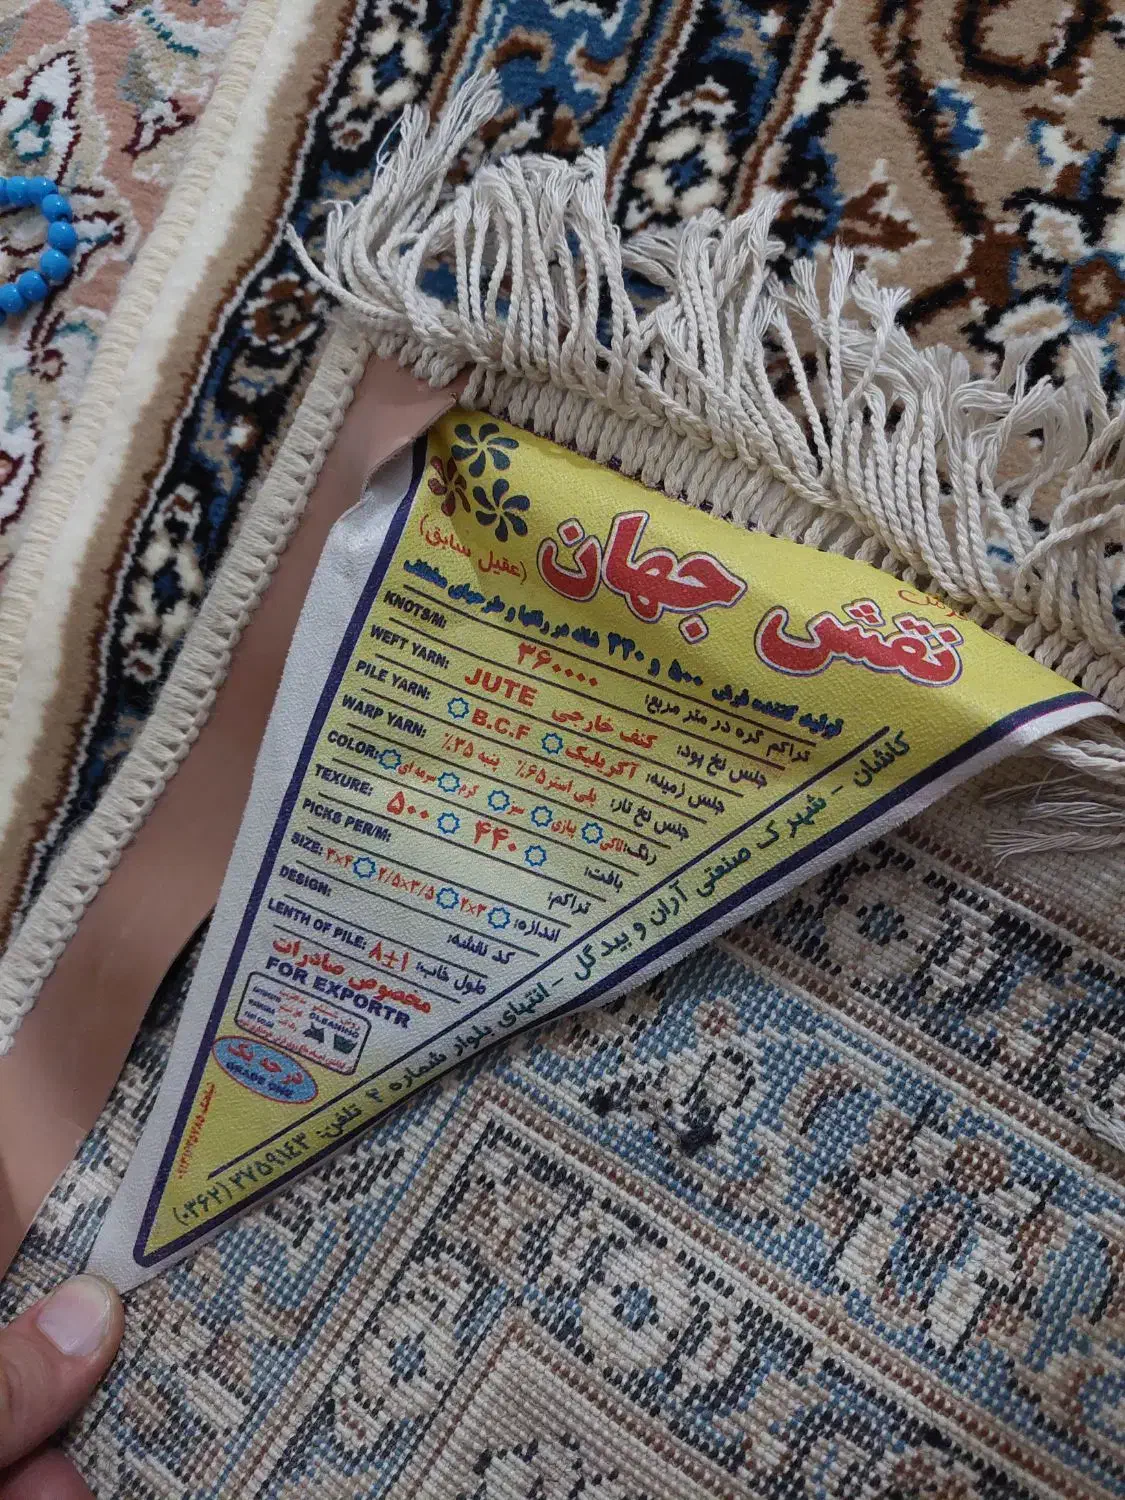 نقش جهان
(عقیل سابق)
تولید کننده فرش ۵۰۰ و ۴۴۰ شانه در رنگها و طرحهای مختلف
KNOTS/M: ۳۶۰۰۰۰ تراکم گره در متر مربع:
WEFT YARN: JUTE کنف خارجی جنس نخ پود:
PILE YARN: B.C.F آکریلیک جنس زمینه:
WARP YARN: پلی استر ۶۵٪ پنبه ۳۵٪ جنس نخ تار:
COLOR: سرمه ای کرم سبز پیازی لاکی رنگ:
TEXURE: ۵۰۰ ۴۴۰ بافت:
PICKS PER/M: تراکم:
SIZE: ۳×۴ ۲/۵×۳/۵ ۲×۳ اندازه:
DESIGN: کد نقشه:
LENTH OF PILE: ۸±۱ طول خاب:
مخصوص صادرات
FOR EXPORTR
CLEANING
درجه یک
GRADE ONE
کاشان - شهرک صنعتی آران و بیدگل - انتهای بلوار شماره ۲ تلفن: ۲۷۵۹۱۴۳ (۰۳۶۲)